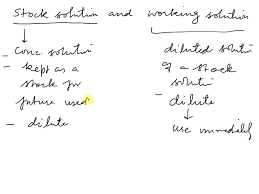 Stock solution and working solution
- Conc solution
- kept as a
stock for
future used
- dilute
diluted solution
of a stock
solution
- dilute
use immediately